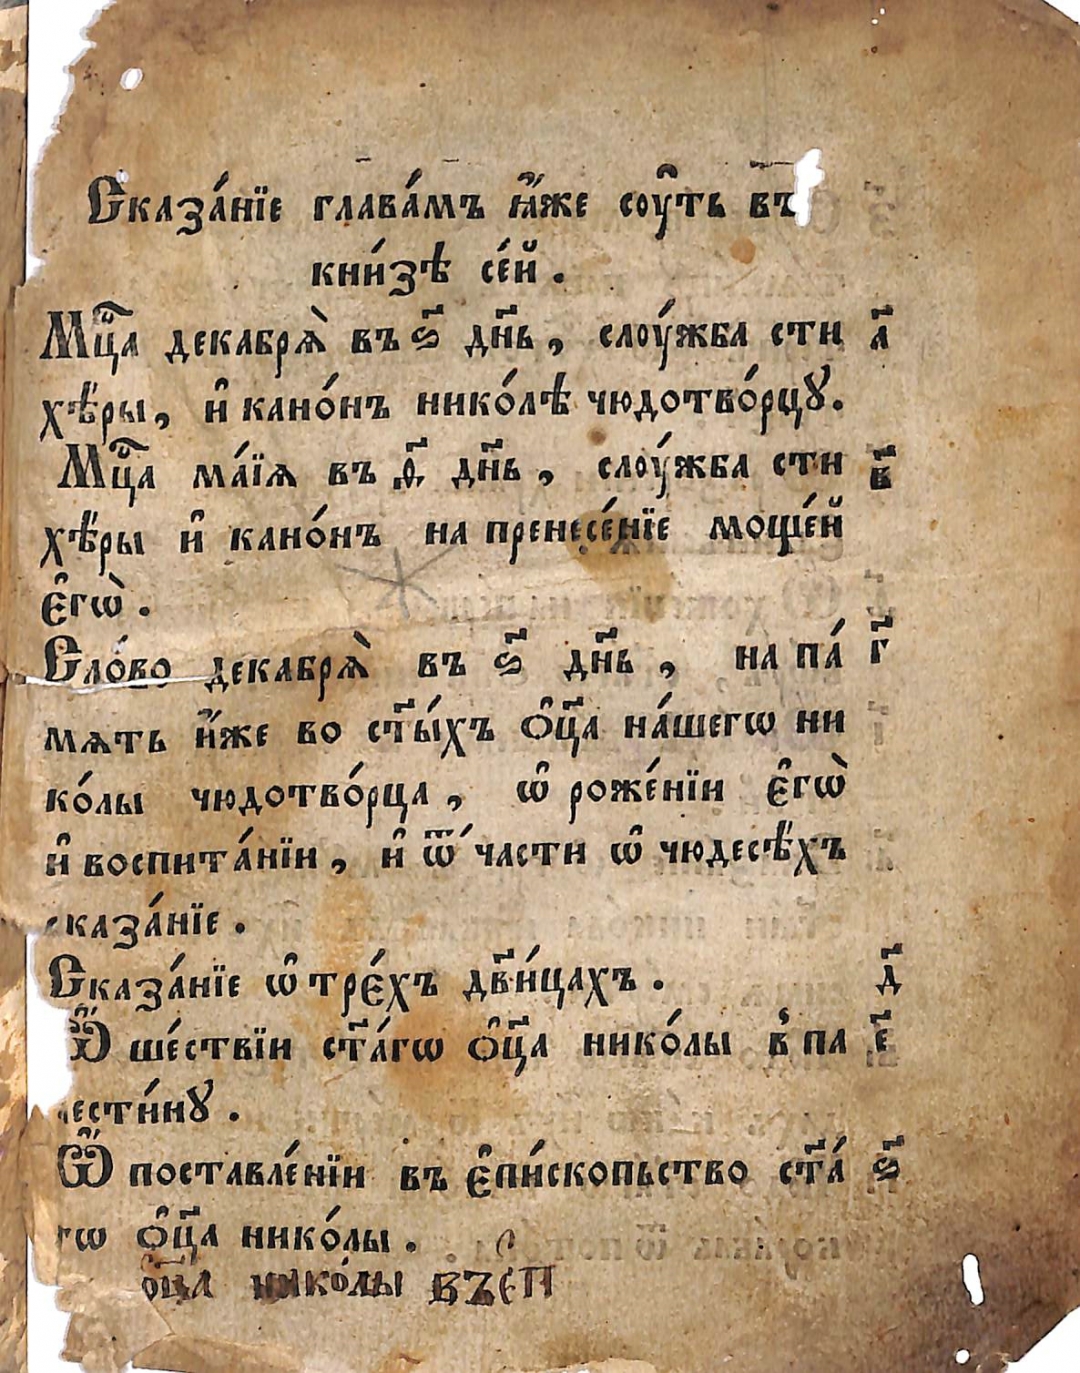 Сказа́нїе глава́мъ ꙗ҆́же соу҆ть въ
кни́зѣ се́й.
Мц҇а декабрѧ̀ въ ѕ҃ дн҃ь, слоу́жба сти а҃
хѣ́ры, и҆ кано́нъ нико́лѣ чюдотво́рцꙋ.
Мц҇а ма́їѧ въ ѳ҃ дн҃ь, слоу́жба сти в҃
хѣ́ры и҆ кано́нъ на пренесе́нїе моще́й
є҆гѡ̀.
Сло́во декабрѧ̀ въ ѕ҃ дн҃ь, на па́ г҃
мѧть и҆́же во ст҃ы́хъ ѻ҆ц҃а на́шегѡ ни
ко́лы чюдотво́рца, ѡ҆ роже́нїи є҆гѡ̀
и҆ воспита́нїи, и҆ ѿ ча́сти ѡ҆ чюдесѣ́хъ
сказа́нїе.
Сказа́нїе ѡ҆ тре́хъ дв҃и́цахъ. д҃
Ѽ ше́ствїи ст҃а́гѡ ѻ҆ц҃а нико́лы в̾ па е҃
лести́нꙋ.
Ѽ поставле́нїи въ є҆пи́скопьство ст҃а́ ѕ҃
гѡ ѻ҆ц҃а нико́лы.
ѻ҆ц҃а нико́лы въ еп